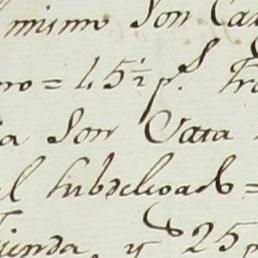 mismo Son Ca
mo = 45½ p.s Tra
ia Son Cata
el Subdelegado =
ienda, y 25 p